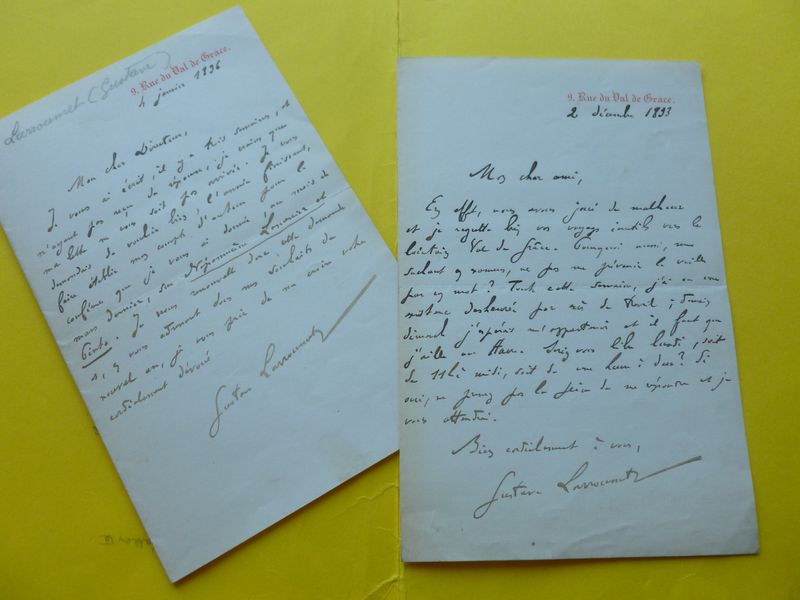 Larroumet (Gustave)
9. Rue du Val de Grace.
4 janvier 1896
Mon cher Directeur,
Je vous ai écrit il y a trois semaines, et
n'ayant pas reçu de réponse, je crains que
ma lettre ne vous soit pas arrivée. Je vous
demandais de vouloir bien, l'année finissant,
faire établir mon compte d'auteur pour la
conférence que je vous ai donnée, au mois de
mars dernier, sur
. Je vous renouvelle donc cette demande
et, en vous adressant mes souhaits de
nouvel an, je vous prie de me croire votre
cordialement dévoué
Gustave Larroumet
9. Rue du Val de Grace.
2 décembre 1893
Mon cher ami,
En effet, nous avons joué de malheur
et je regrette bien vos voyages inutiles vers le
lointain Val de Grâce. Pourquoi aussi, me
sachant en, ne pas me prévenir la veille
par un mot? Toute cette semaine, j'ai eu une
existence désheurée par; demain
dimanche j'espérais m'appartenir et il faut que
j'aille au Havre. Seriez vous libre lundi, soit
de 11h à midi, soit de une heure à deux? Si
oui, ne prenez pas la peine de me répondre et je
vous attendrai.
Bien cordialement à vous,
Gustave Larroumet